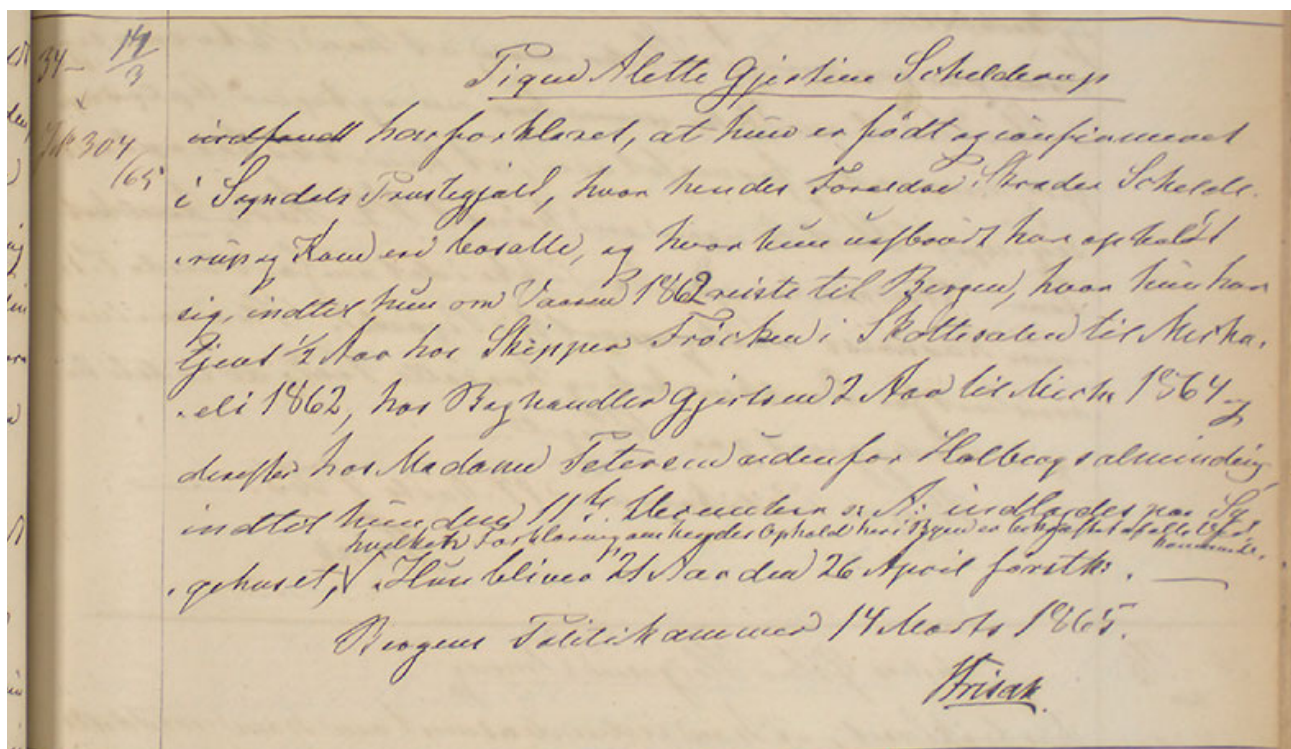 34 14/3
Pigen Alette Gjertine Schelderup
har forklaret, at hun er født og confirmeret
No 304/65
i Sogndals Præstegjæld, hvor hendes Forældre, Skræder Schelde-
rup og Kone ere bosatte, og hvor hun uafbrudt har opholdt
sig, indtil hun om Vaaren 1862 reiste til Bergen, hvor hun har
tjent 1/2 Aar hos Skipper Frøcken i Skottesalen til Micha-
eli 1862, hos Baghandler Gjertsen 2 Aar til Mich. 1864 og
derefter hos Madame Petersen udenfor Holbergsalmindig,
indtil hun den 11te Decembr s: A: indlagdes paa Sy-
hvilken Forklaring om hendes Ophold her i Bgen er bekræftet af alle
gehuset, √ . Hun bliver 21 Aar den 26 April førstk: .
Bergens Politikammer 14 Marts 1865.
Frisak.